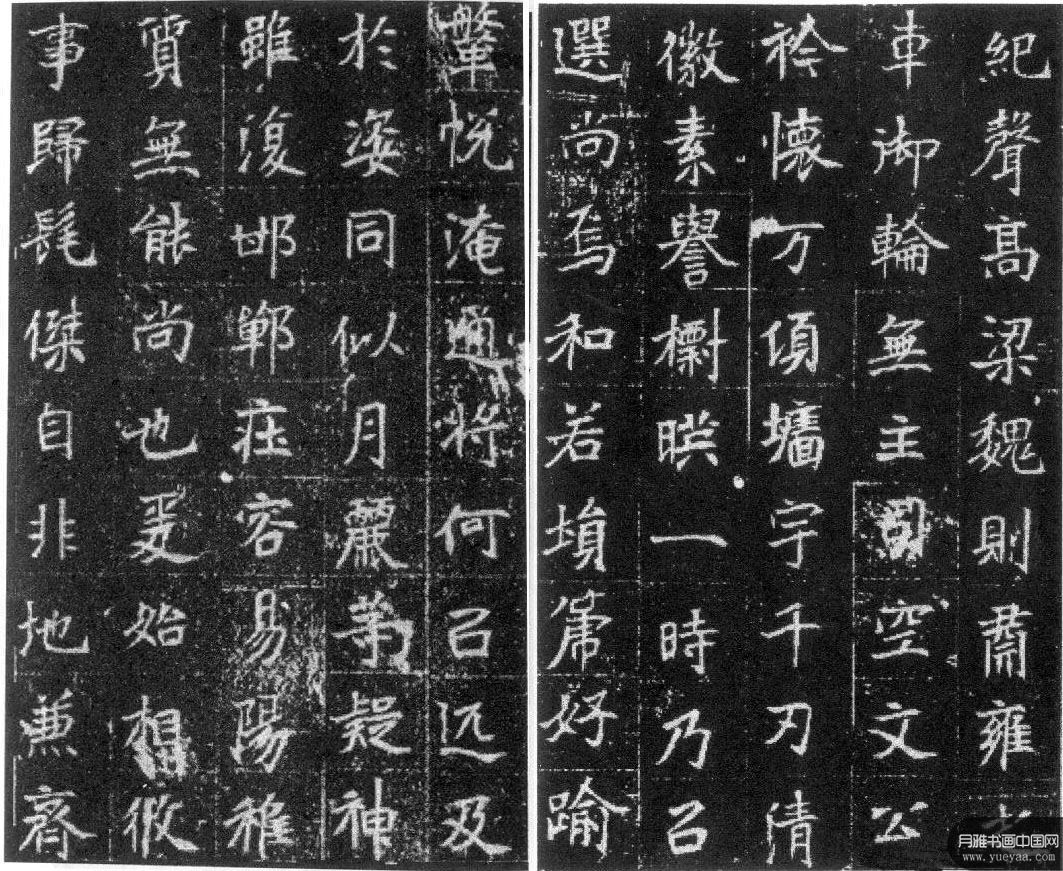 紀聲高梁魏則齋雍
車御輪無主司空文公
衿懷万傾墻宇千刃清
徽素譽櫥映一時乃召
選尚焉和若塤箎好踰
鞶帨淹通將何召远及
於姿同似月麗茀疑神
雖復邯鄲莊容易陽稚
質無能尚也爰始相攸
事歸髦傑自非地兼齊
月雅书画中国网
www.yueyaa.com